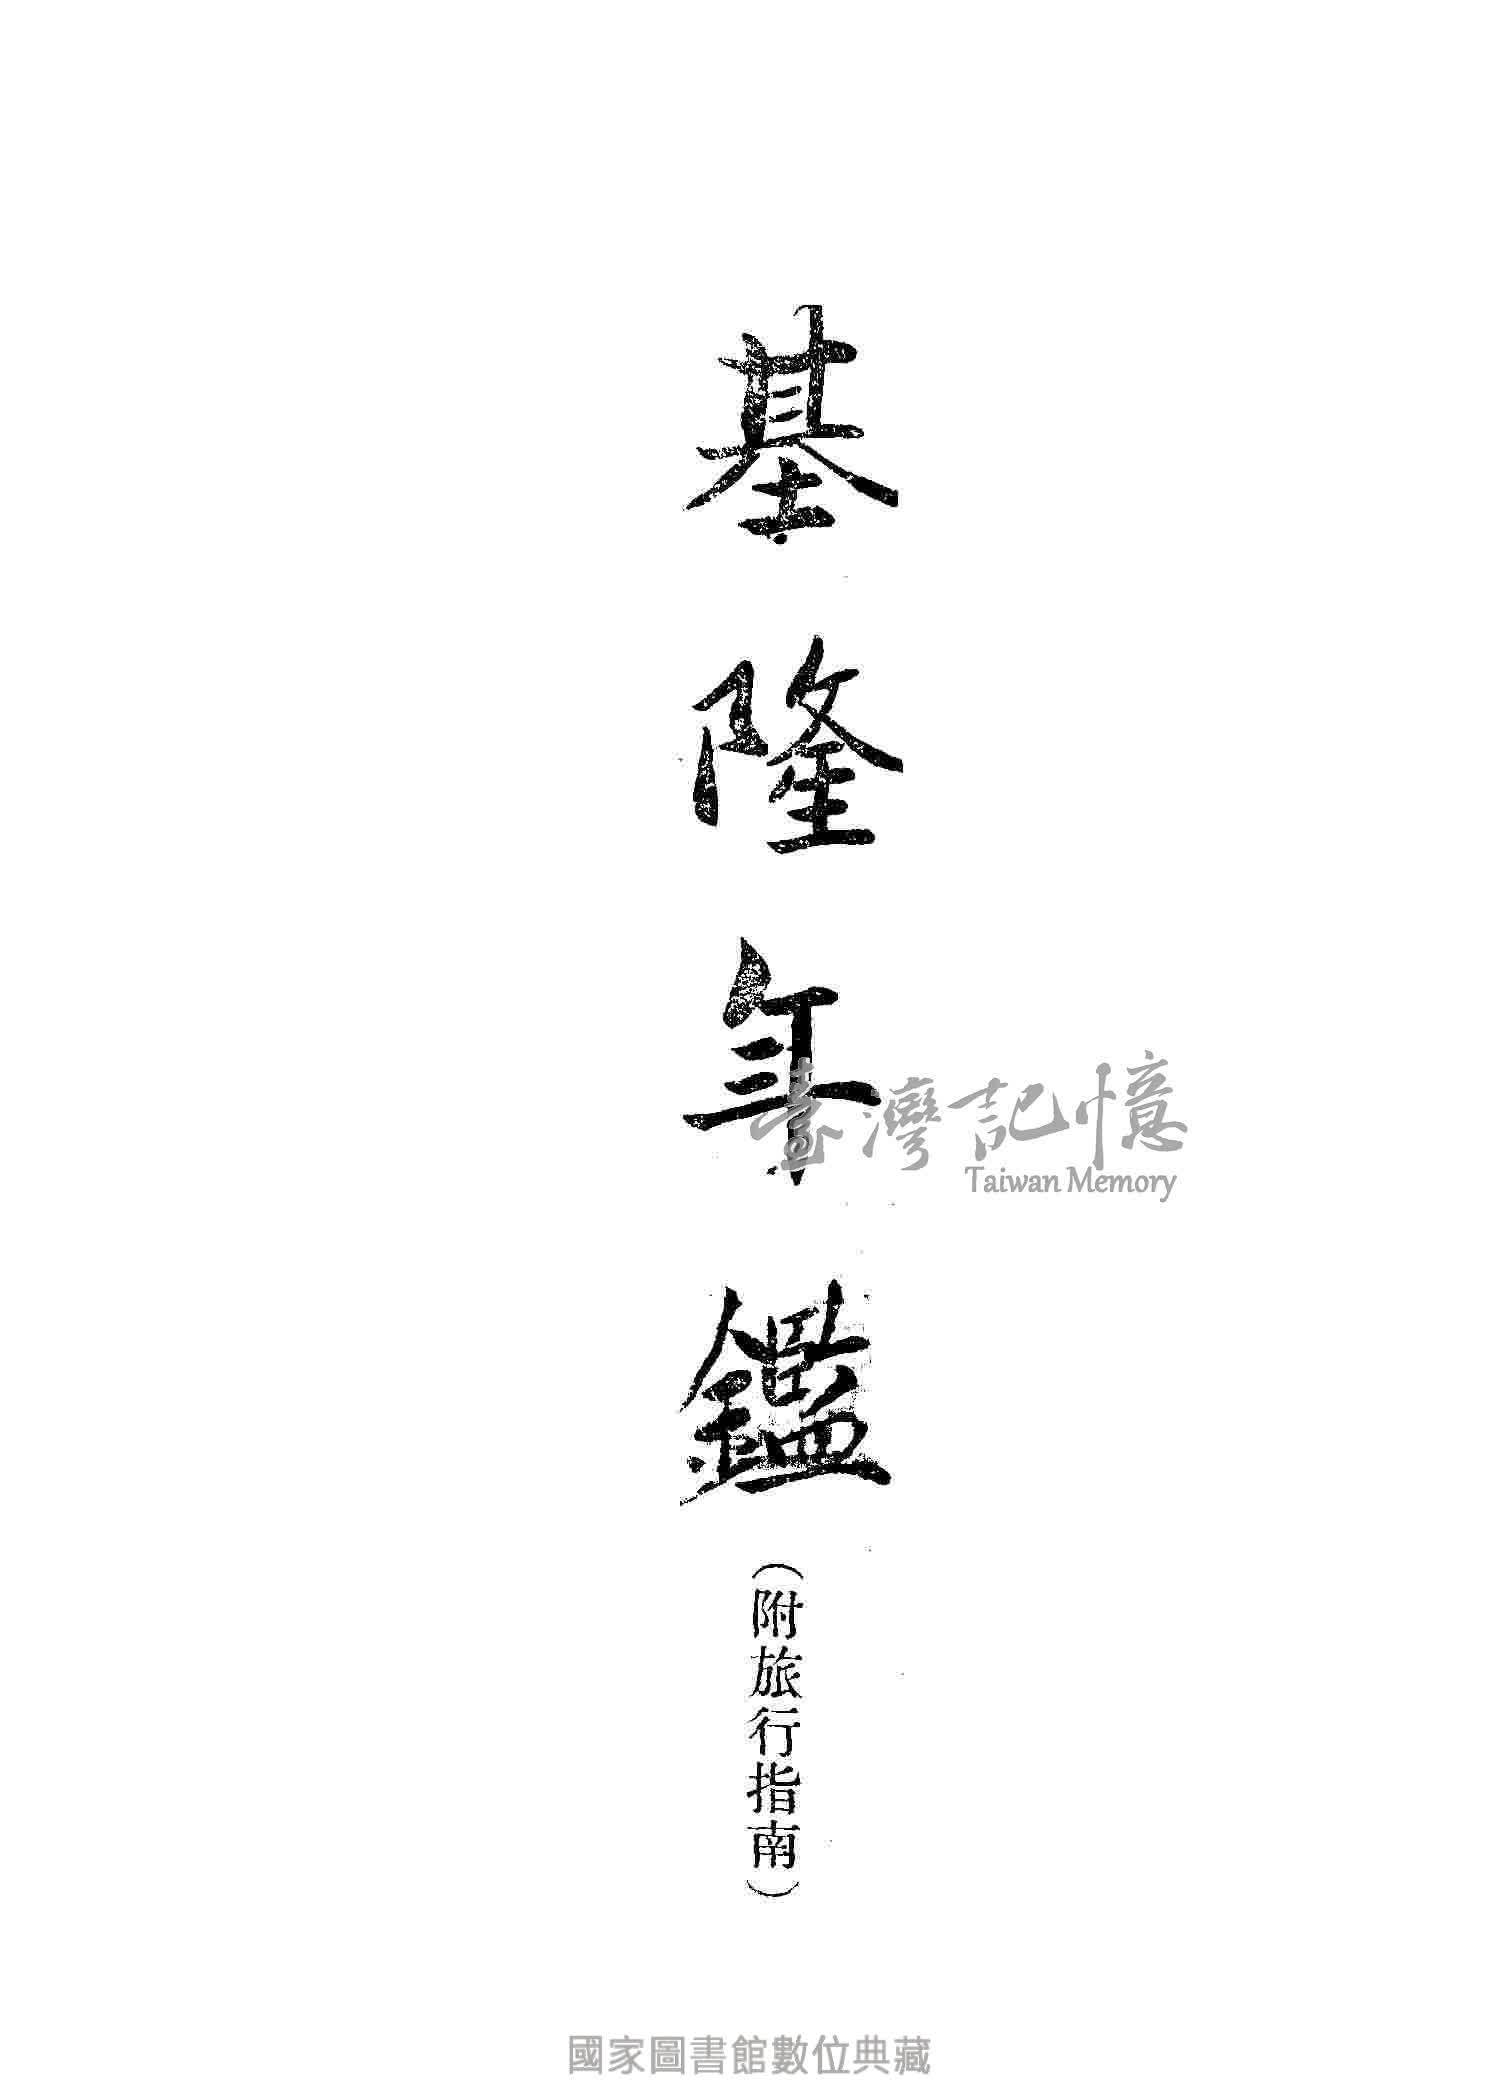 基隆年鑑
（附旅行指南）
臺灣記憶
Taiwan Memory
國家圖書館數位典藏